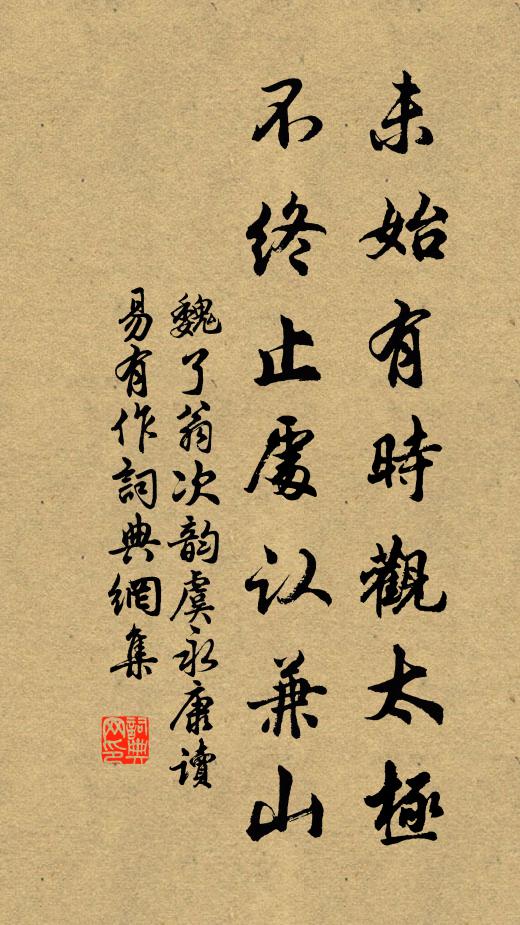 未始有時觀太極
不終止處认兼山
魏了翁次韵虞永康讀
易有作詞典網集
詞典
网印